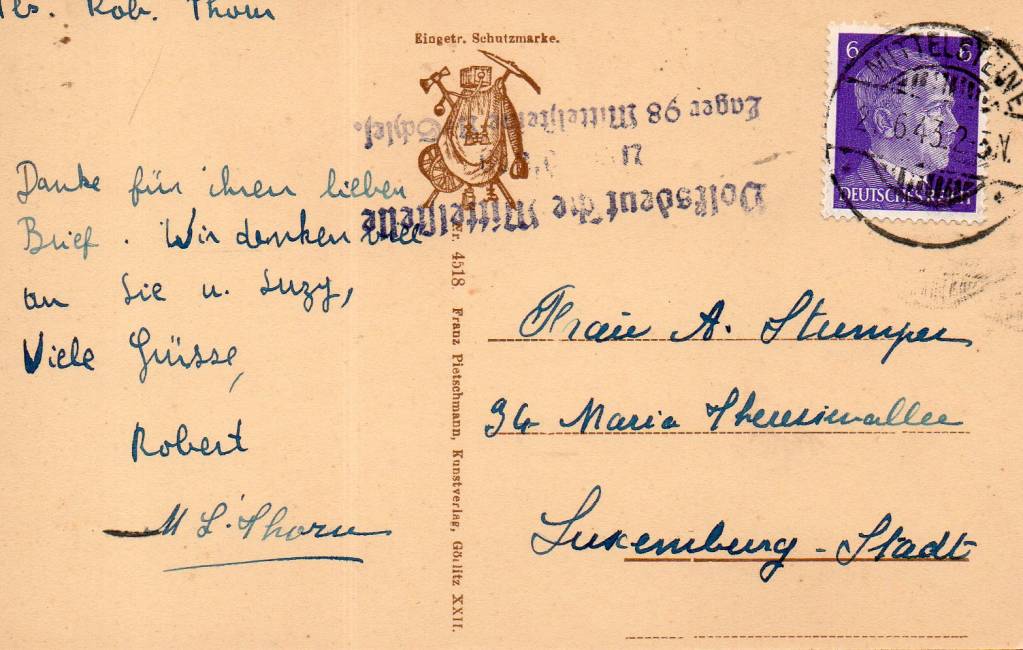 Rob. Thorn
Eingetr. Schutzmarke.
Danke für ihren lieben
Brief. Wir denken viel
an Sie u. Suzy,
Viele Grüsse,
Robert
M L. Thorn
Volksdeutsche Mittelstelle
Lager 98 Mittelsteine Schles.
Nr. 4518. Franz Pietschmann, Kunstverlag, Görlitz XXII.
6 6
DEUTSCHES REICH
MITTELSTEINE
6.43
Fraie A. Stumper
34 Maria Theresiaallee
Luxemburg-Stadt